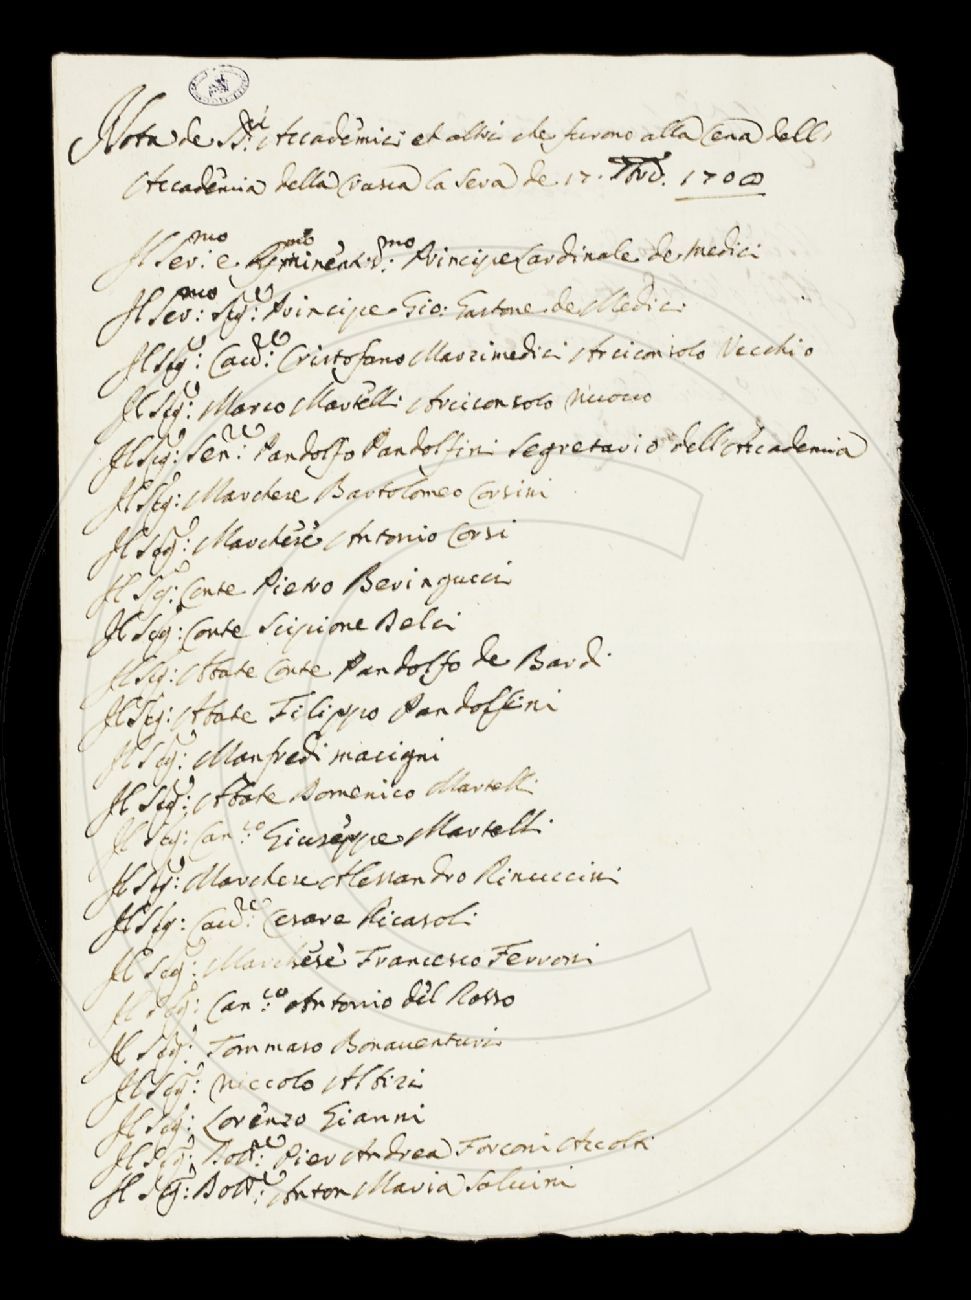 Nota de SS.ri Accademici et altri che furono alla Cena dell'
Accademia della Crusca la Sera de 17. 1700
Il Ser.mo e Eminentis.mo Principe Cardinale de Medici
Il Ser.mo Sig.r Principe Gio: Gastone de Medici
Il Sig.r Cau.re Cristofano Marzimedici Arciconsolo Vecchio
Il Sig.r Marco Martelli Arciconsolo Nuouo
Il Sig.r Sen.re Pandolfo Pandolfini Segretario dell'Accademia
Il Sig.r Marchese Bartolomeo Corsini
Il Sig.r Marchese Antonio Corsi
Il Sig.r Conte Pietro Beringucci
Il Sig.r Conte Scipione Belci
Il Sig.r Abate Conte Pandolfo de Bardi
Il Sig.r Abate Filippo Pandolfini
Il Sig.r Manfredi macigni
Il Sig.r Abate Domenico Martelli
Il Sig.r Can.co Giuseppe Martelli
Il Sig.r Marchese Alessandro Rinuccini
Il Sig.r Cau.re Cesare Ricasoli
Il Sig.r Marchese Francesco Ferroni
Il Sig.r Can.co Antonio del Rosso
Il Sig.r Tommaso Bonauenturi
Il Sig.r Niccolo Albizi
Il Sig.r Lorenzo Gianni
Il Sig.r Dott.re Pier Andrea Forzoni Accolti
Il Sig.r Dott.re Anton Maria Saluini